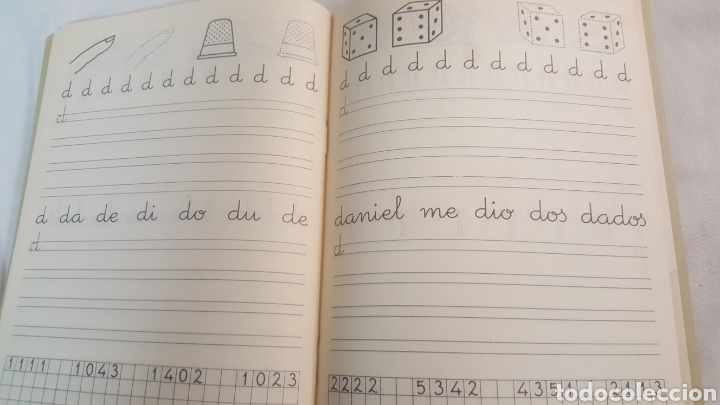 d d d d d d d d d d d d d
d
d da de di do du de
d
1111 1043 1402 1023
d d d d d d d d d d d
d
daniel me dio dos dados
d
2222 5342 4351 2113
todocoleccion.net